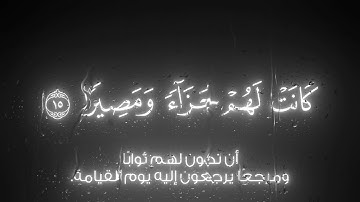 كَانَتْ لَهُمْ جَزَآءً وَمَصِيرًا ١٥
أن تكون لهم ثوابًا
ومرجعًا يرجعون إليه يوم القيامة.